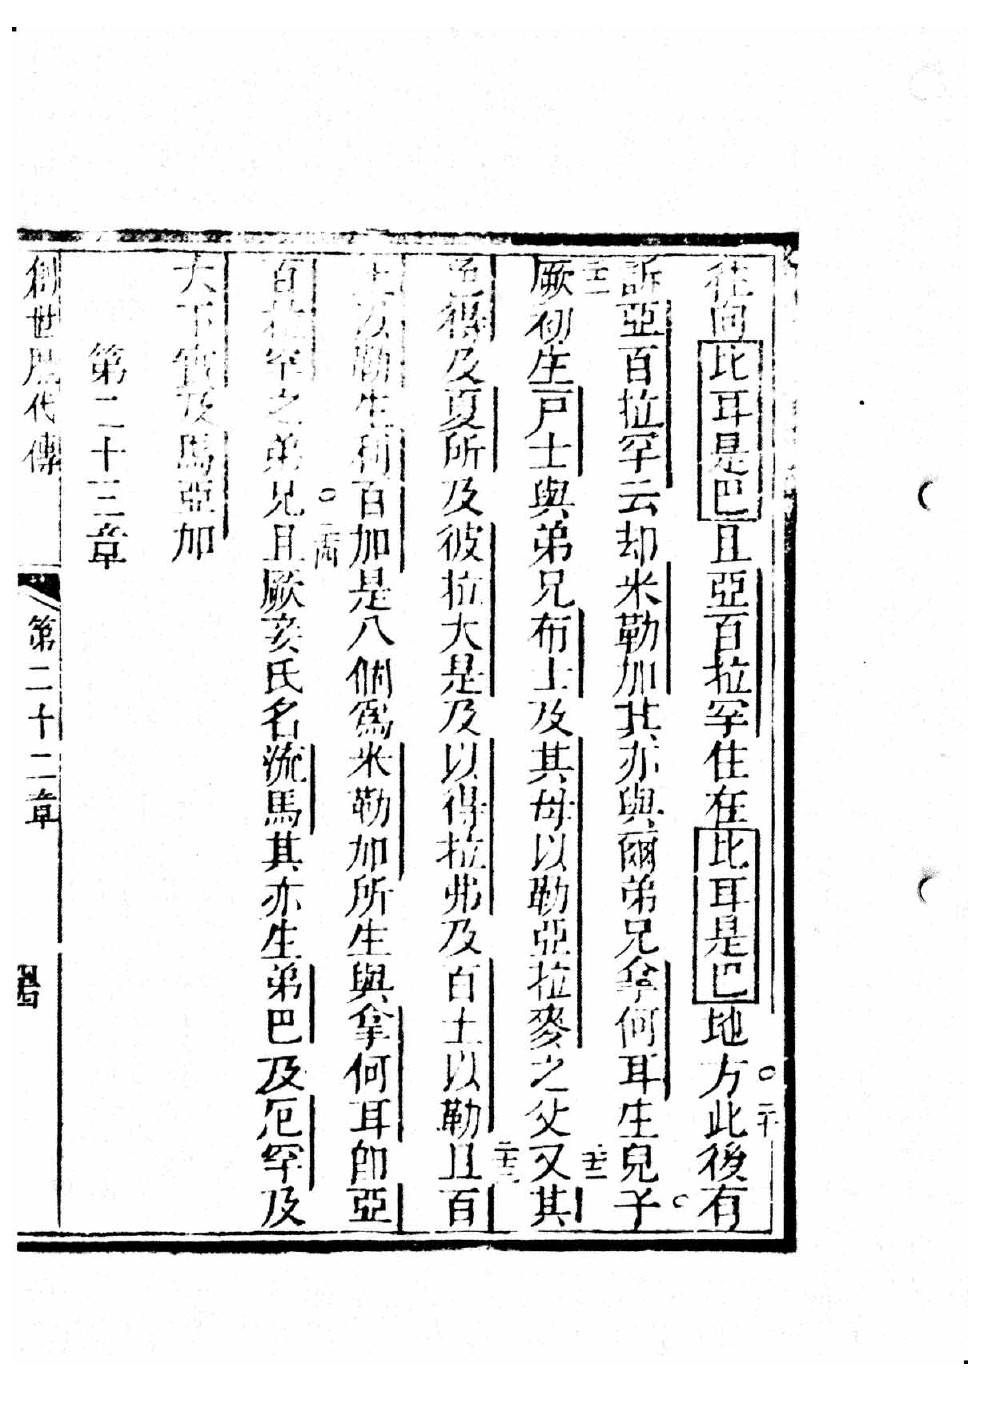 往向比耳是巴且亞百拉罕住在比耳是巴地方此後有
訴亞百拉罕云却米勒加其亦與爾弟兄拿何耳生兒子
厥初生戸士與弟兄布士及其母以勒亞拉麥之父又其
色得及夏所及彼拉大是及以得拉弗及百土以勒且百
土以勒生利百加是八個爲米勒加所生與拿何耳即亞
百拉罕之弟兄且厥亥氏名流馬其亦生弟巴及厄罕及
大下實及馬亞加
第二十三章
創世歷代傳
第二十二章